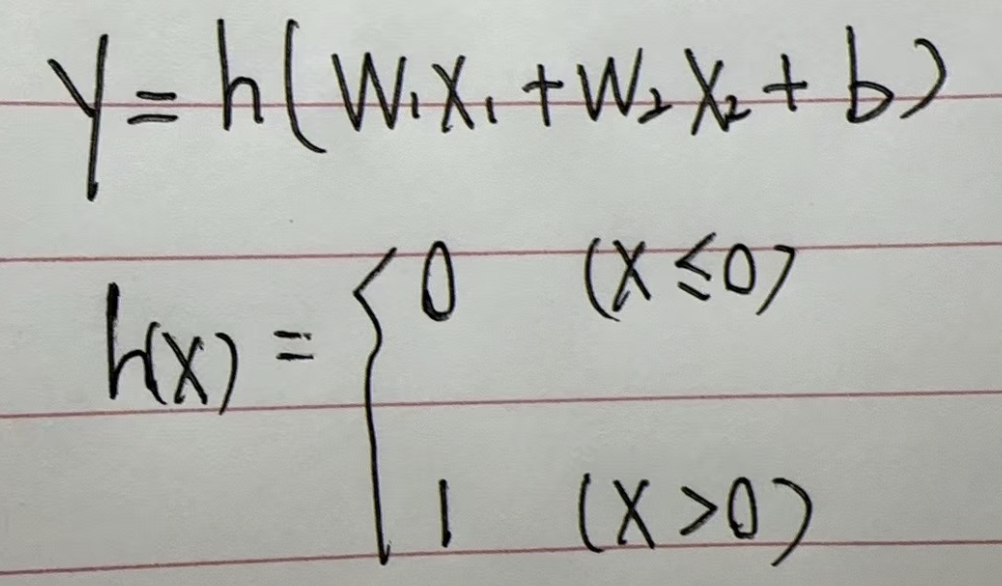 y = h(W₁X₁ + W₂X₂ + b)
h(x) = { 0 (x ≤ 0)
1 (x > 0)